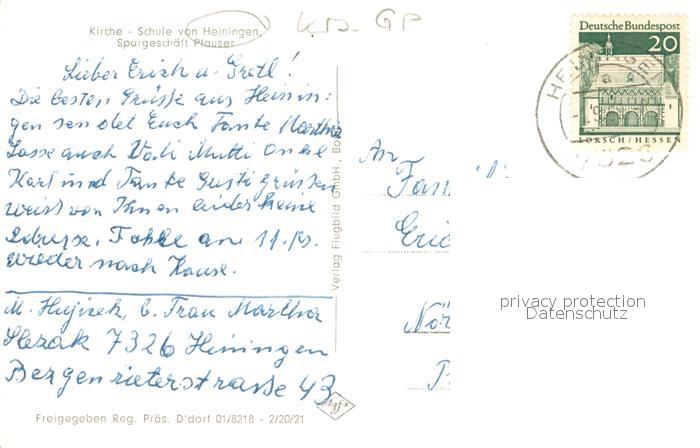 Kirche - Schule von Heiningen,
Spargeschäft Pfauser
Krs. GP
Lieber Erich u. Gretl!
Die besten Grüsse aus Heinin:
gen sendet Euch Tante Martha
Lasse auch Vati Mutti Onkel
Karl und Tante Gusti grüßen
weiss von Ihnen leider keine
Adresse. Fahre am 11.
wieder nach Hause.
M. Hujizek, b. Frau Martha
Slezak 7326 Heiningen
Bergenrieterstrasse 43
Freigegeben Reg. Präs. D'dorf 01/8218 - 2/20/21
Verlag Flugbild GmbH., Bo
Agfa
Deutsche Bundespost
20
LORSCH/HESSEN
HEININGEN
An
Fam
Eric
Nör
privacy protection
Datenschutz